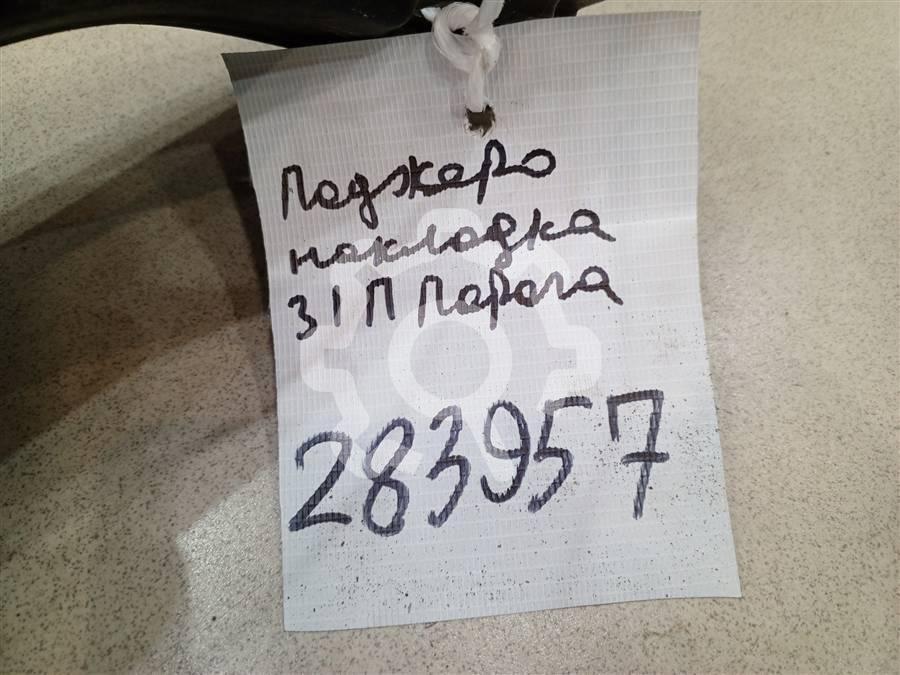 Паджеро
накладка
З/П Порога
283957